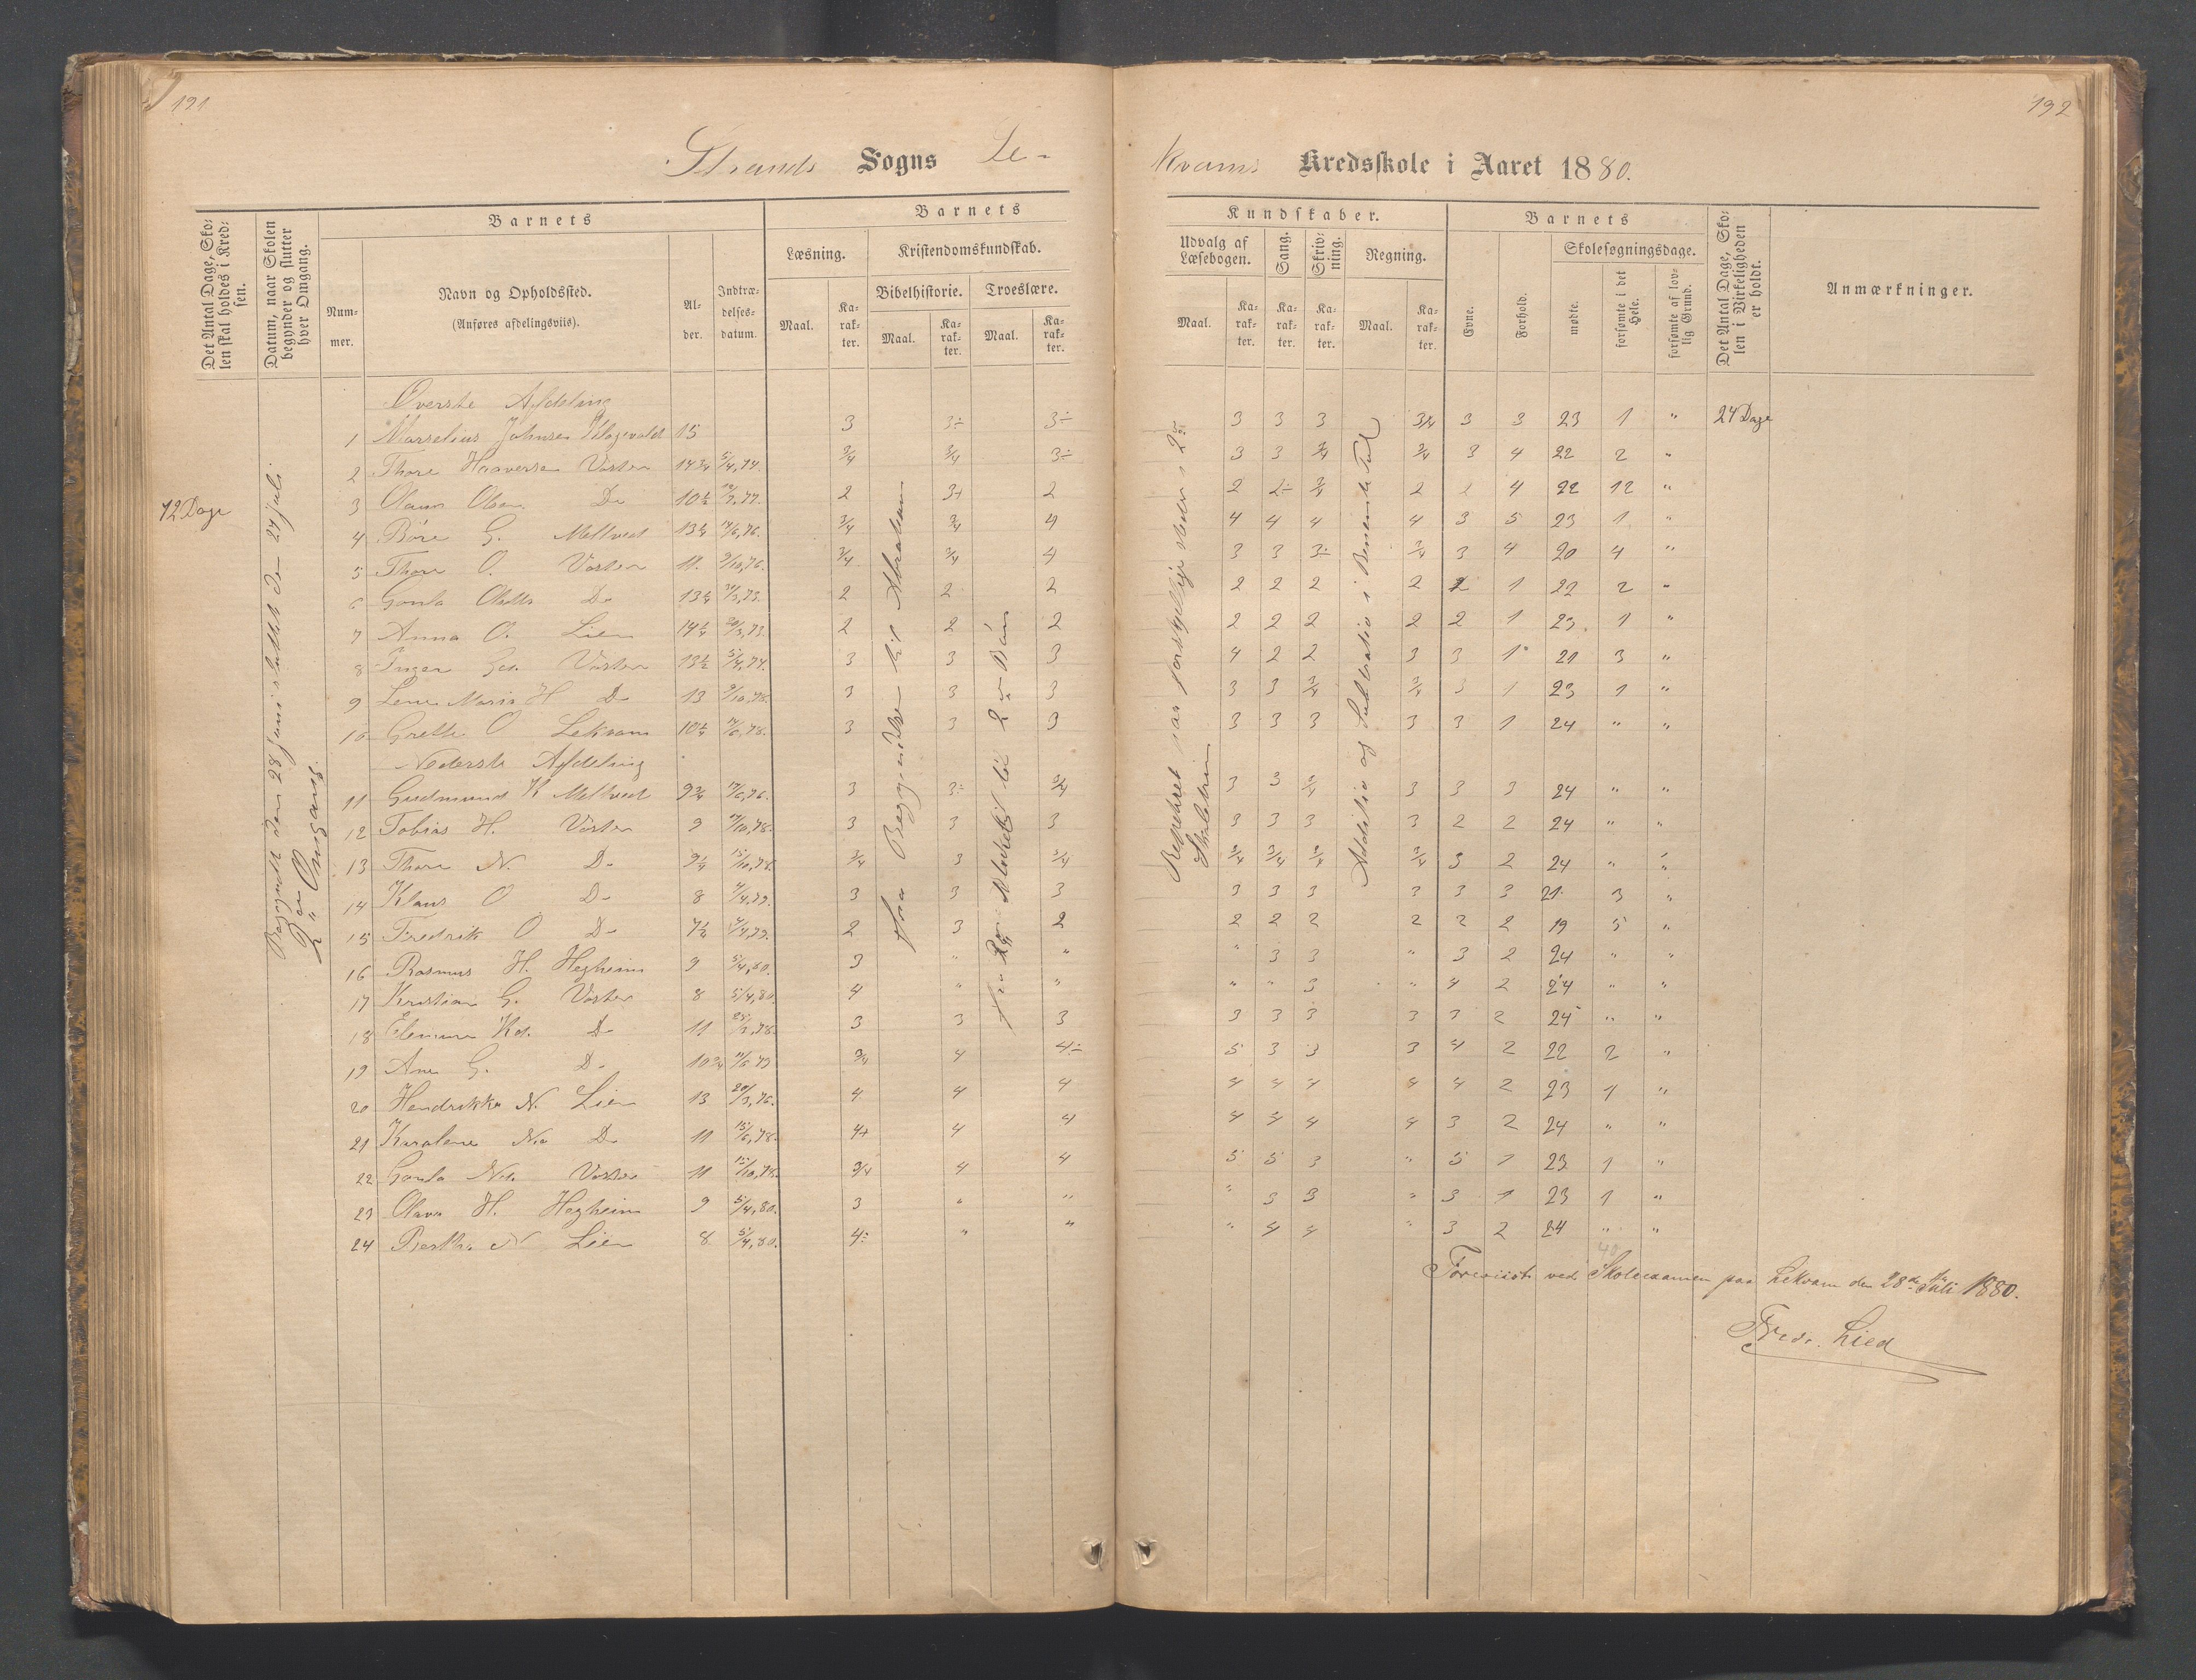 191.
192
Strands Sogns Le-
kvams Kredsskole i Aaret 1880.
Det Antal Dage, Skolen skal holdes i Kredsen.
Datum, naar Skolen begynder og slutter hver Omgang.
Barnets
Nummer.
Navn og Opholdssted.
(Anføres afdelingsviis).
Alder.
Indtrædelsesdatum.
Barnets
Læsning.
Kristendomskundskab.
Bibelhistorie. Troeslære.
Maal. Karakter. Maal. Karakter. Maal. Karakter.
Kundskaber.
Udvalg af Læsebogen. Sang. Skrivning. Regning.
Maal. Karakter. Karakter. Karakter. Maal. Karakter.
Barnets
Evne. Forhold.
Skolesøgningsdage.
mødte. forsømte i det Hele. forsømte af lovlig Grund.
Det Antal Dage, Skolen i Virkeligheden er holdt.
Anmærkninger.
72 Dage
Begyndt den 28 Juni sluttet den 24 Juli
2en Omgang.
Fra Begyndelse til Abraham
Addition og Subtration i Benævnte Tal
Overste Afdeling
1 Marselius Johnsen 15 3 3÷ 3÷ 3 3 3 3/4 3 3 23 1 " 24 Dage
2 Thore Haaversen Vøster 14 3/4 5/4,74. 3/4 3/4 3÷ 3 3 3/4 3/4 3 4 22 2 "
3 Olaus Olsen Do 10 1/2 2 3+ 2 2 2÷ 3/4 2 2 4 22 12 "
4 Børe G. Meltveit 13 3/4 3/4 4 4 4 4 4 3 5 23 1 "
5 Thore O. Vøster 11. 9/10,76. 3/4 3/4 4 3 3 3÷ 3/4 3 4 20 4 "
6 Gonla Do 2 2 2 2 2 2 2 2 1 22 2 "
7 Anna O. Lien 2 2 2 2 2 2 2 2 1 23. 1 "
8 Inger Vøster 13 1/2 5/4,74. 3 3 3 4 2 2 3 3 1 21 3 "
9 Lene Maria H Do 13 9/10,78. 3 3 3 3 3 3/4 3/4 3 1 23 1 "
10 Grethe O Lekvam 3 3 3 3 3 3 3 3 1 24 " "
Nederste Afdeling
11 Gudmund K Meltveit 9 3/4 3 3÷ 3/4 3 3 3/4 3 3 3 24 " "
12 Tobias H. Vøster 9 3 3 3 3 3 3 3 2 2 24 " "
13 Thore N. Do 15/10,78. 3/4 3 3/4 3/4 3/4 3/4 3/4 3 2 24 " "
14 Klaus O Do 8 3 3 3 3 3 3 3 3 3 21. 3 "
15 Fredrik O Do 7 1/2 2 3 2 2 2 2 2 2 2 19 5 "
16 Rasmus H. Hegheim 9 5/4,80. 3 " " " 3 3 " 3 2 24 " "
17 Kristian G. Vøster 8 5/4,80. 4 " " " " 3 " 4 2 24 " "
18 Do 11 3 3 3 3 3 3 3 3 2 24 " "
19 Ane G. Do 10 3/4 3/4 4 4÷ 5 3 3 3 4 2 22 2 "
20 Hendrikke N. Lien 13 20/3,76. 4 4 4 4 4 4 4 4 2 23 1 "
21 Karalene Do 11 15/6,78. 4+ 4 4 4 4 4 4 3 2 24 " "
22 Gonla Vøster 11 15/10,78. 3/4 4 4 5 5 3 " 5 1 23 1 "
23 Olava H. Hegheim 9 5/4,80. 3 " " " 3 3 " 3 1 23 1 "
24 Berthe N Lien 8 5/4,80. 4÷ " " " 4 4 " 3 2 24 " "
40
Foreviist ved Skoleexamen paa Lekvam den 28de Juli 1880.
Fredr. Lied